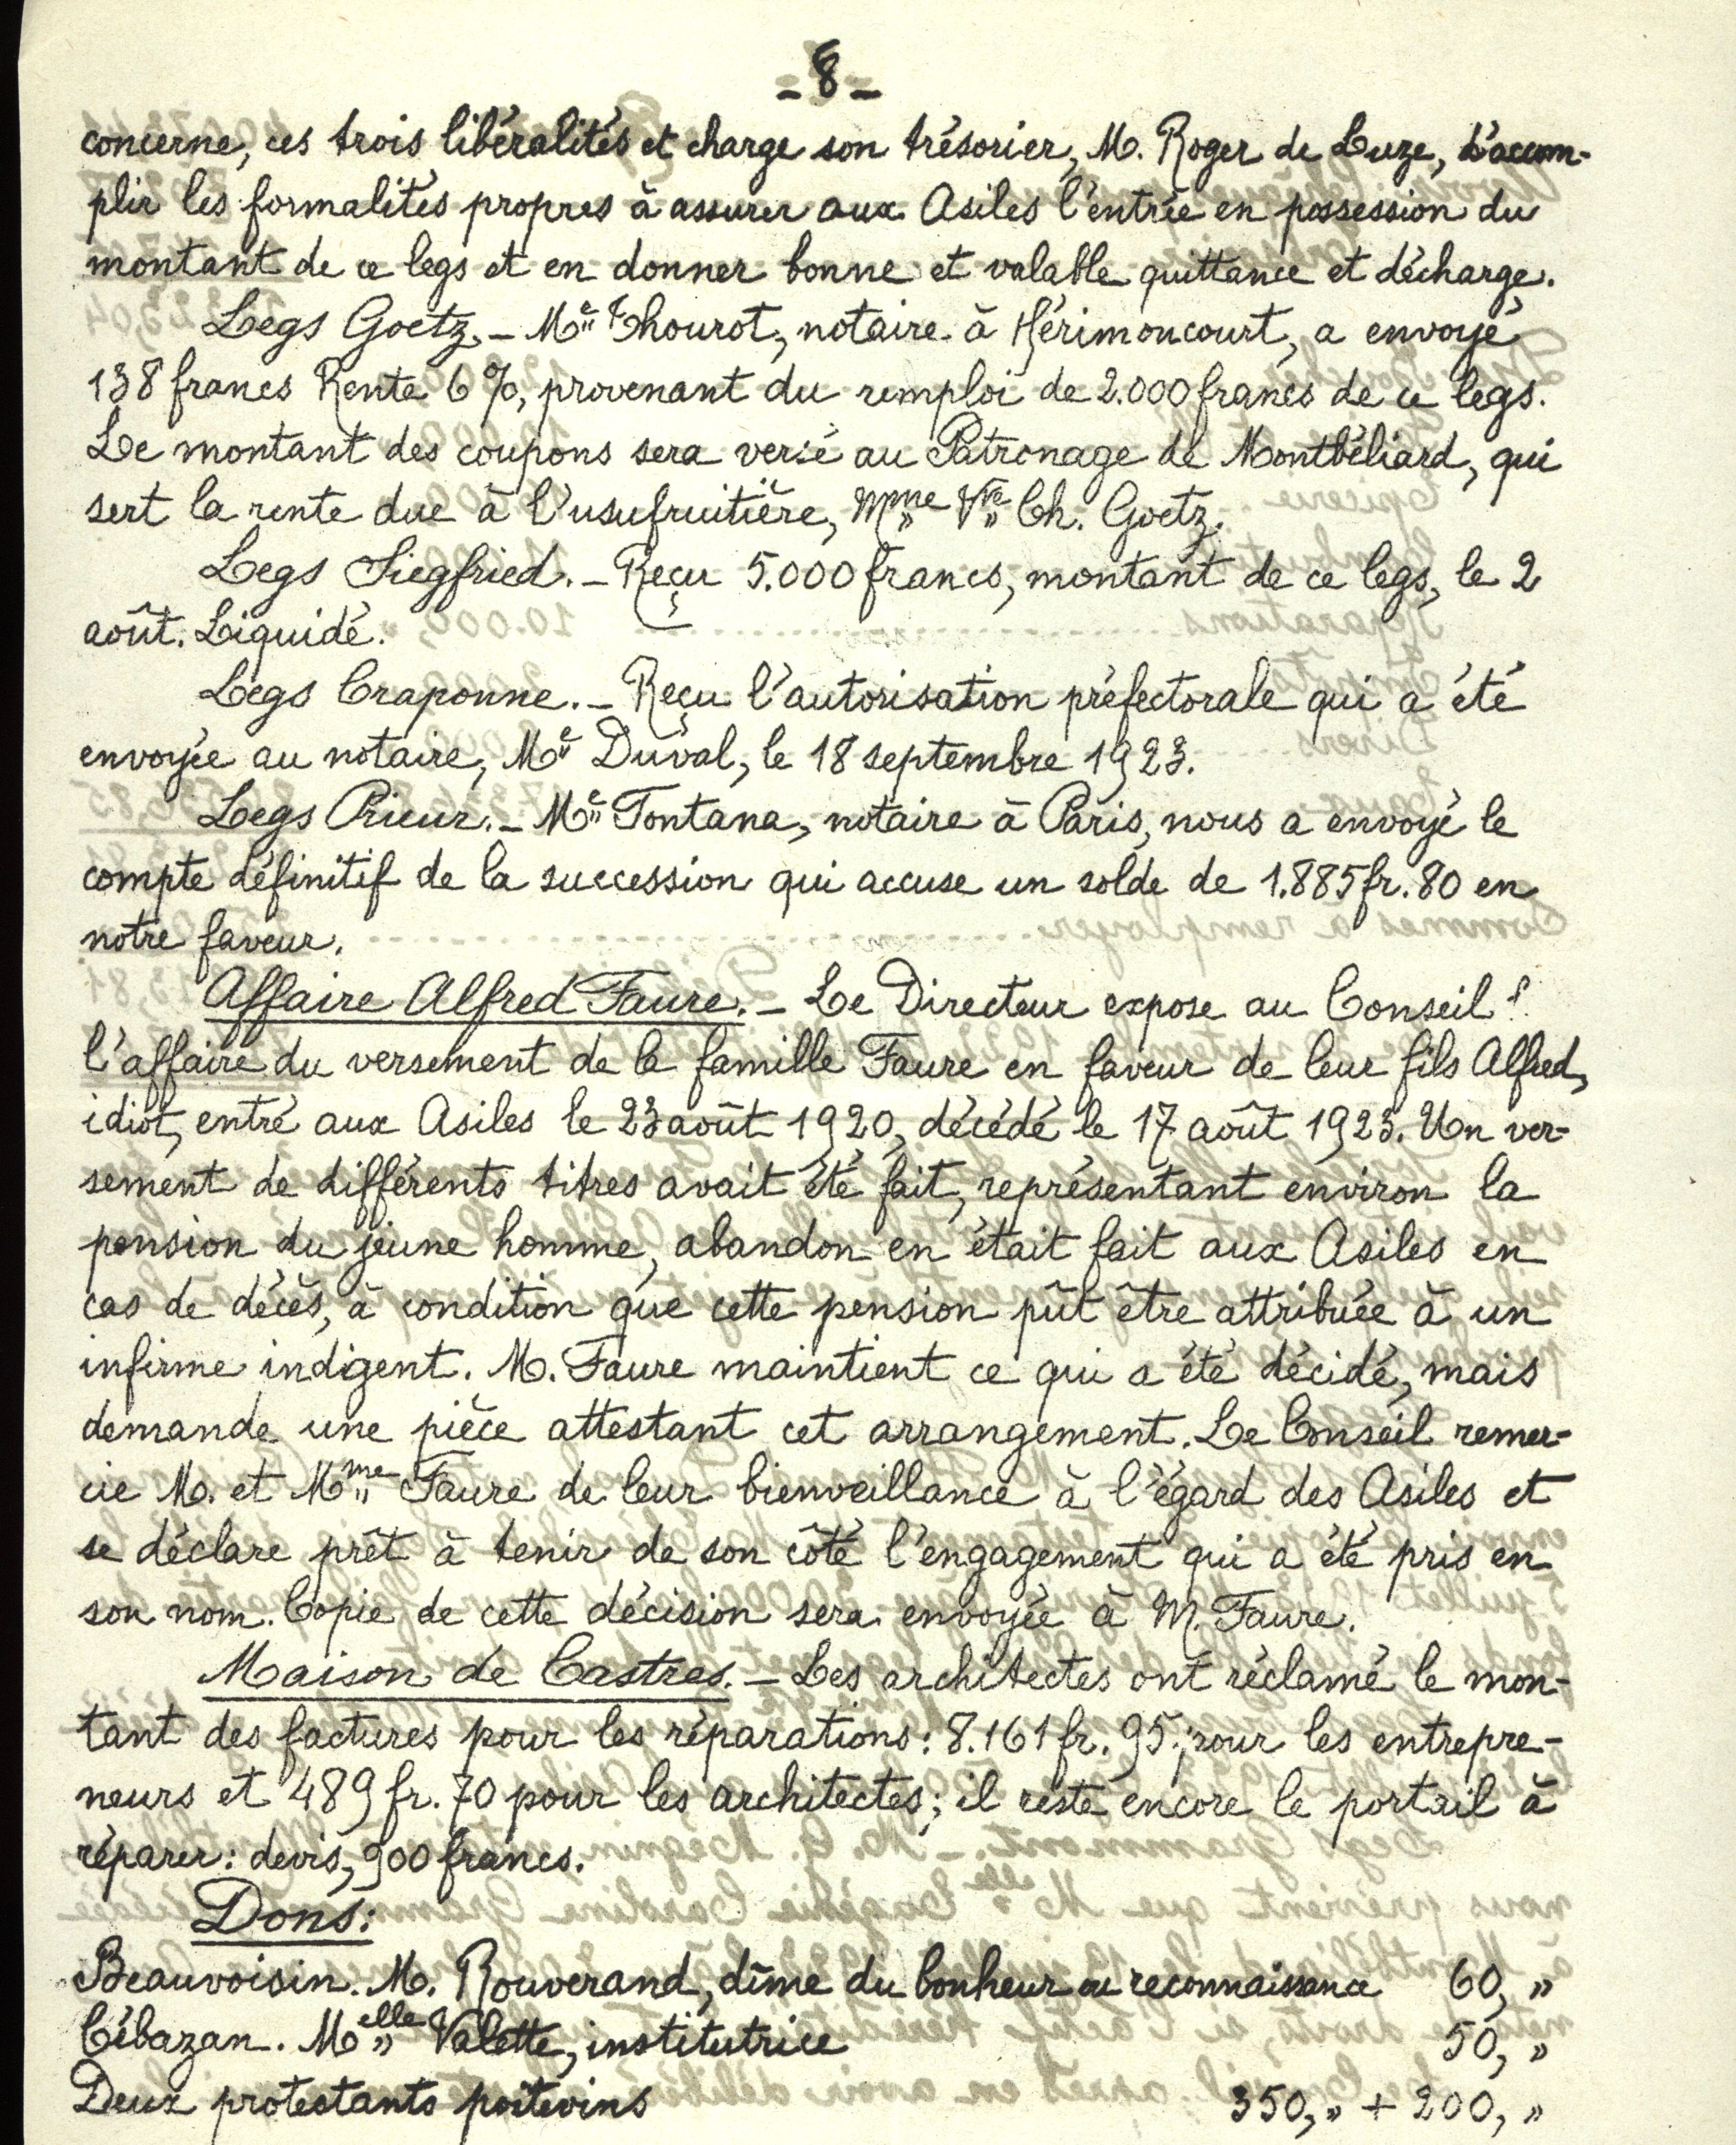 - 8 -
concerne, ces trois libéralités et charge son trésorier, M. Roger de Luze, d'accom-
plir les formalités propres à assurer aux Asiles l'entrée en possession du
montant de ce legs et en donner bonne et valable quittance et décharge.
Legs Goetz. - Me Thourot, notaire à Hérimoncourt, a envoyé
138 francs Rente 6%, provenant du remploi de 2.000 francs de ce legs.
Le montant des coupons sera versé au Patronage de Montbéliard, qui
sert la rente due à l'usufruitière, Mme Vve Ch. Goetz.
Legs Siegfried. - Reçu 5.000 francs, montant de ce legs, le 2
août. Liquidé.
Legs Craponne. - Reçu l'autorisation préfectorale qui a été
envoyée au notaire, Me Duval, le 18 septembre 1923.
Legs Prieur. - Me Fontana, notaire à Paris, nous a envoyé le
compte définitif de la succession qui accuse un solde de 1.885 fr. 80 en
notre faveur.
Affaire Alfred Faure. - Le Directeur expose au Conseil
l'affaire du versement de la famille Faure en faveur de leur fils Alfred,
idiot, entré aux Asiles le 23 août 1920, décédé le 17 août 1923. Un ver-
sement de différents titres avait été fait, représentant environ la
pension du jeune homme, abandon en était fait aux Asiles en
cas de décès, à condition que cette pension pût être attribuée à un
infirme indigent. M. Faure maintient ce qui a été décidé, mais
demande une pièce attestant cet arrangement. Le Conseil remer-
cie M. et Mme Faure de leur bienveillance à l'égard des Asiles et
se déclare prêt à tenir de son côté l'engagement qui a été pris en
son nom. Copie de cette décision sera envoyée à M. Faure.
Maison de Castres. - Les architectes ont réclamé le mon-
tant des factures pour les réparations : 8.161 fr. 95 pour les entrepre-
neurs et 489 fr. 70 pour les architectes; il reste encore le portail à
réparer : devis, 900 francs.
Dons :
Beauvoisin. M. Rouverand, dîme du bonheur reconnaissance 60, "
Cébazan. Melle Valette, institutrice 50, "
Deux protestants poitevins 350, " + 200, "